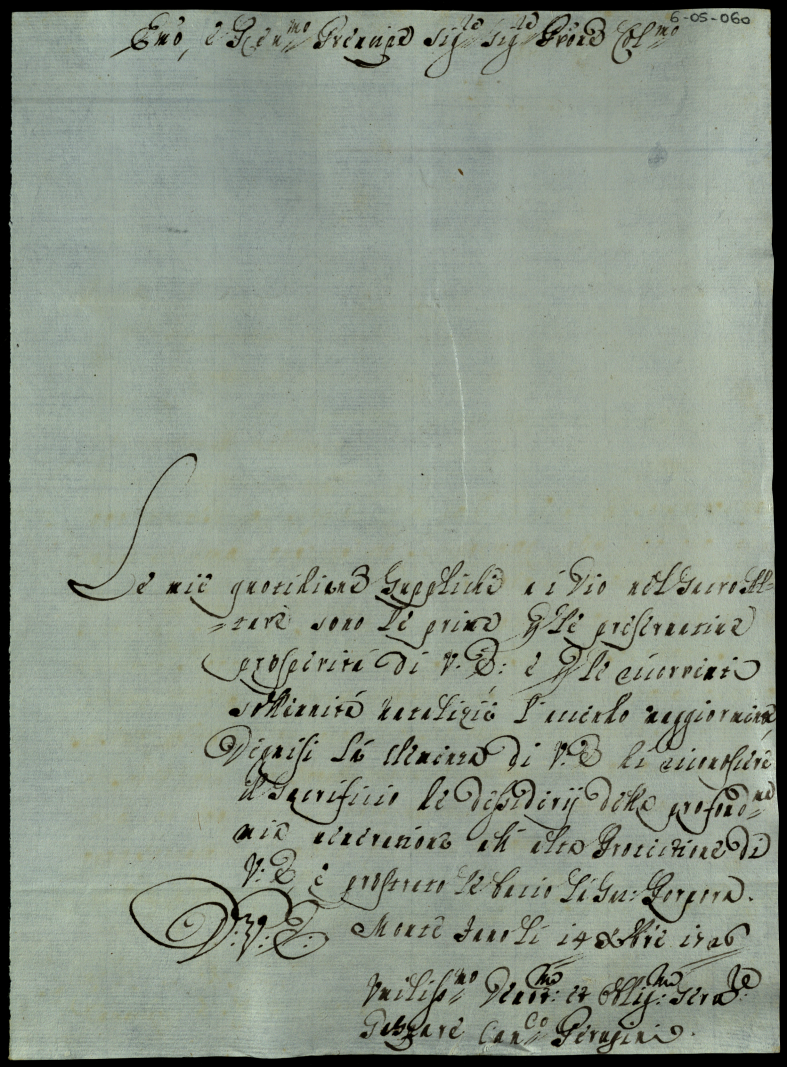 6-05-060
Emo, e Rẽn.mo Prencipe Sig.re Sig.re Prõne Col.mo
Le mie quotidiane Suppliche a i Dio nel Sacro Al=
=tare sono le prime p le preservative
prosperità di V: E: e p le
sollennità natalizie l'accerto maggiormente,
Degnisi la clemenza di V: E di riconoscere
il Sacrificio de desiderij della profond.ma
mia venerazione all' alta Protezione di
V: E, e prostrato le bacio la Sac: Porpora.
D: V: E: Monte San li 14 Xbre 1726
Umiliss.mo Devot:mo et Obblig:mo Serv:re
Gaspare Can.co Perugini.